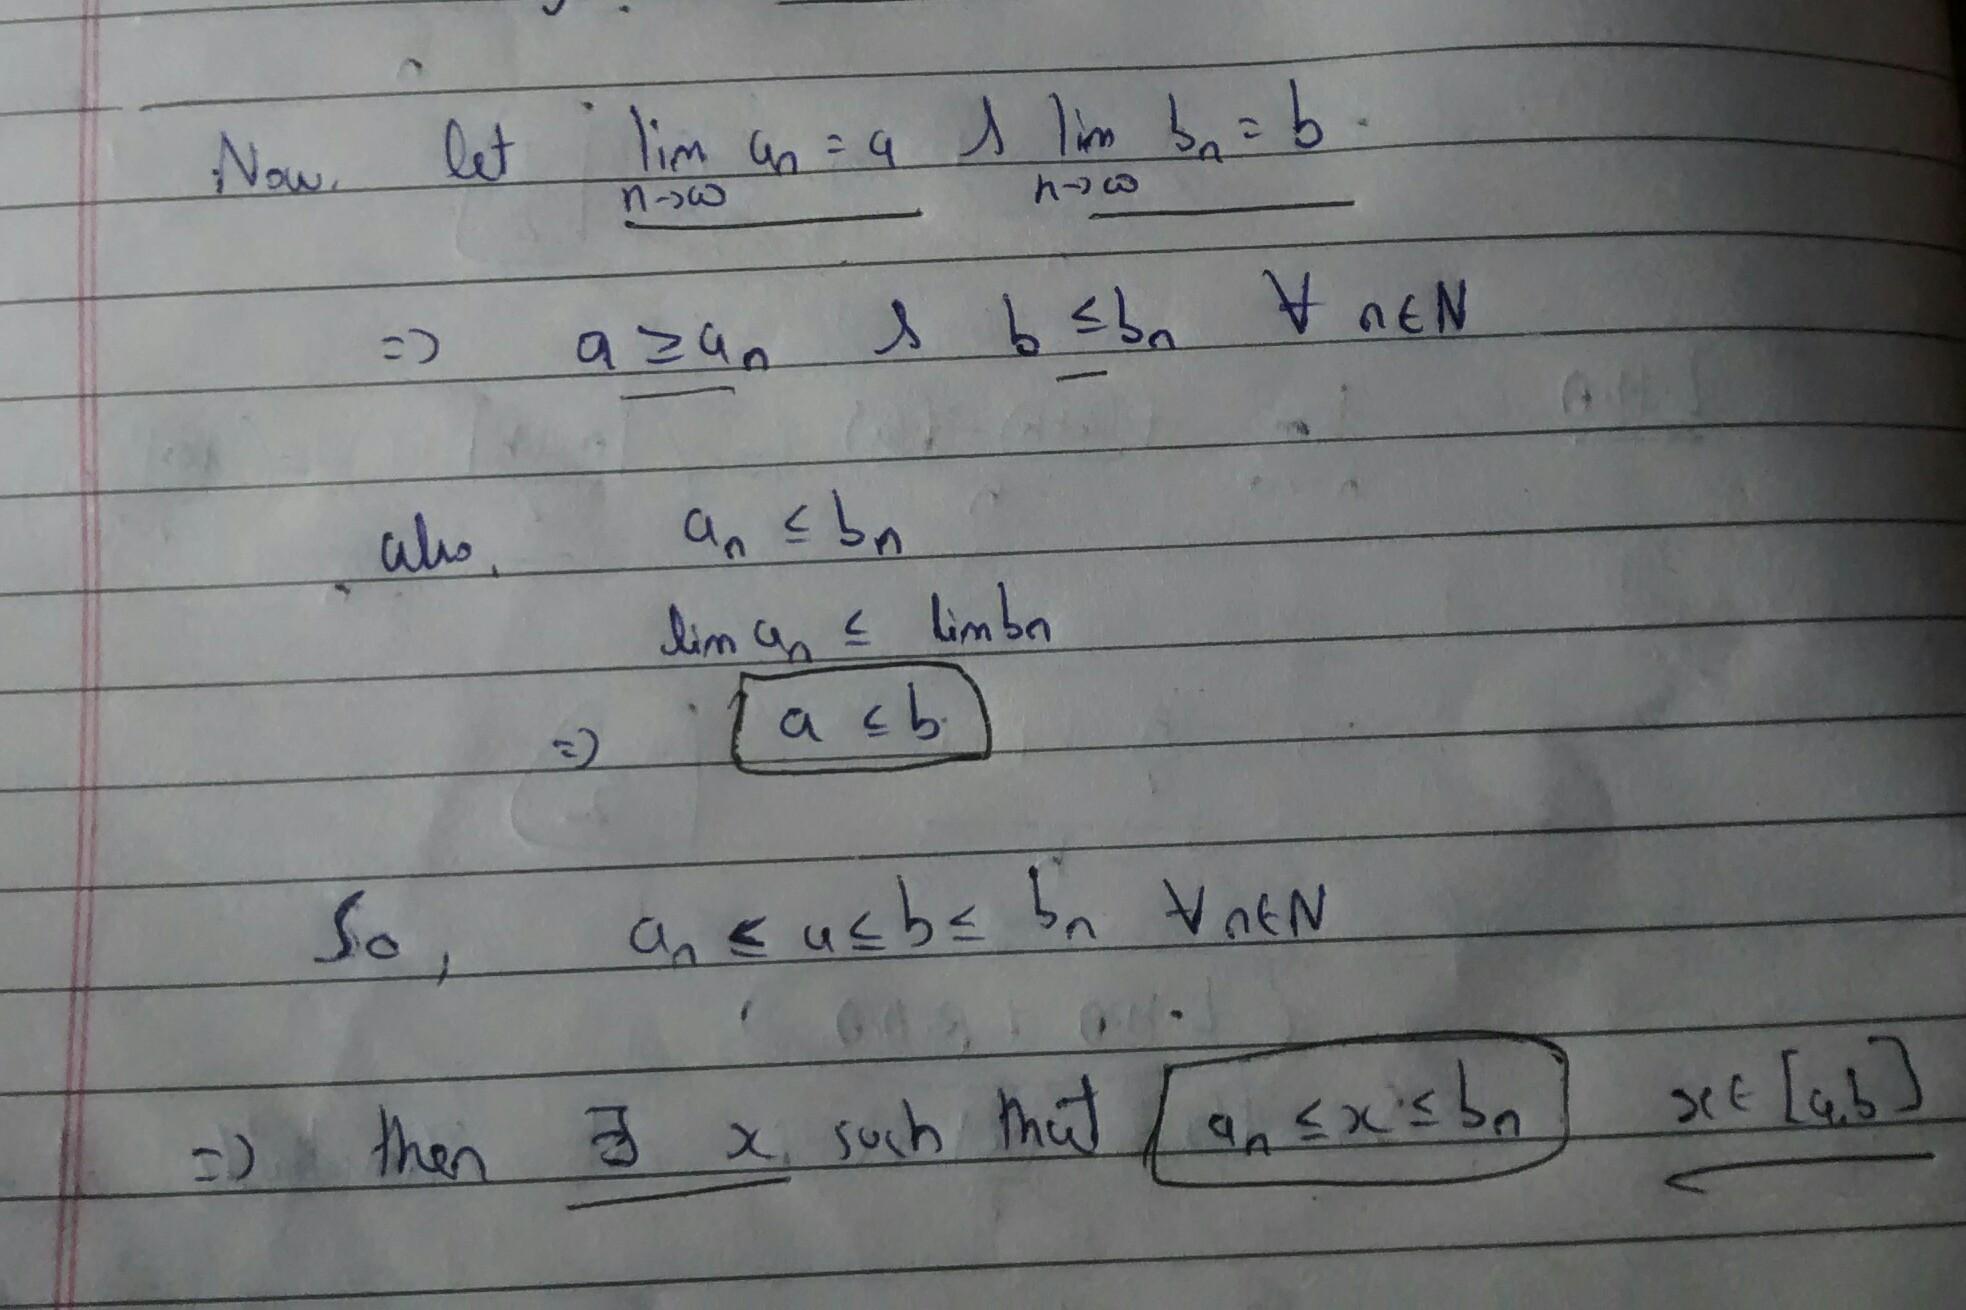 Now, let lim n→∞ an = a & lim n→∞ bn = b.
=> a ≥ an & b ≤ bn ∀ n∈N
also, an ≤ bn
lim an ≤ lim bn
=> a ≤ b
So, an ≤ a ≤ b ≤ bn ∀ n∈N
=> then ∃ x such that an ≤ x ≤ bn x∈ [a,b]